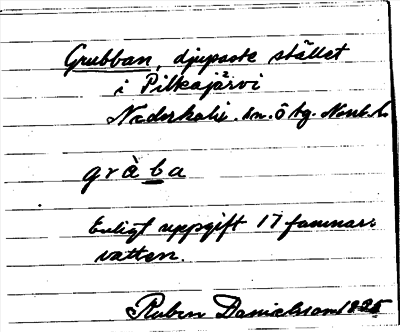 Grubban, djupaste stället
i Pilkajärvi
Nederkalix sn. Ö tg. Norrb. l.
gràba
Enligt uppgift 17 famnar
vatten.
Ruben Danielsson 1925